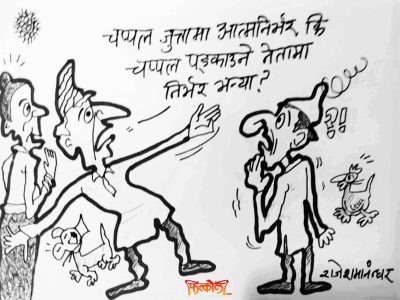 चप्पल जुत्तामा आत्मनिर्भर कि
चप्पल पड्काउने नेतामा
निर्भर भन्या?
?!!
राजेशमानन्धर
फित्कौली